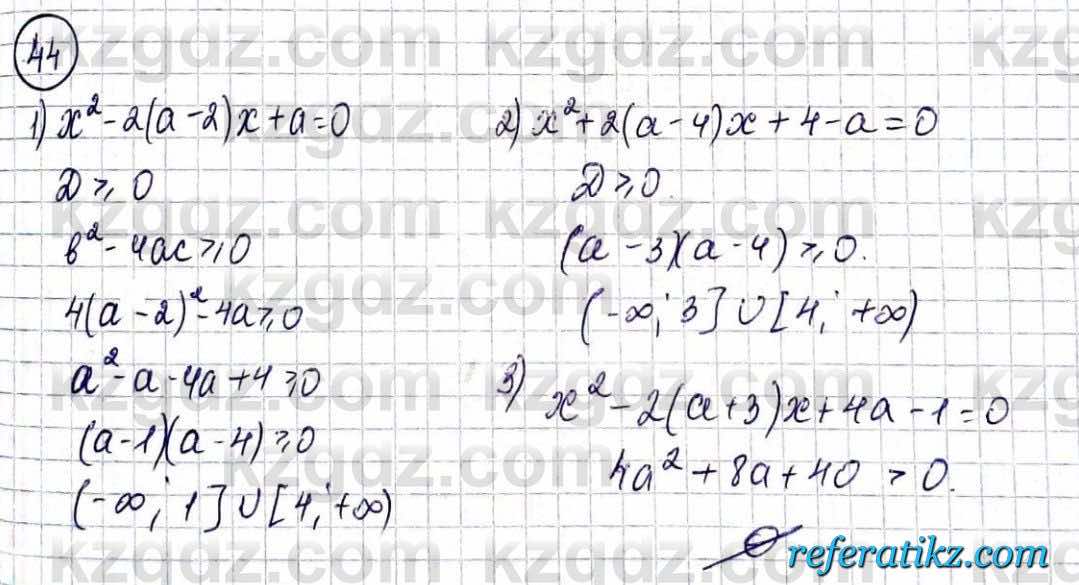 44
1) x² - 2(a - 2)x + a = 0
D ⩾ 0
b² - 4ac ⩾ 0
4(a - 2)² - 4a ⩾ 0
a² - a - 4a + 4 ⩾ 0
(a - 1)(a - 4) ⩾ 0
(-∞; 1] ∪ [4; +∞)
2) x² + 2(a - 4)x + 4 - a = 0
D ⩾ 0.
(a - 3)(a - 4) ⩾ 0.
(-∞; 3] ∪ [4; +∞)
3) x² - 2(a + 3)x + 4a - 1 = 0
4a² + 8a + 40 > 0.
∅
referatikz.com
kzgdz.com